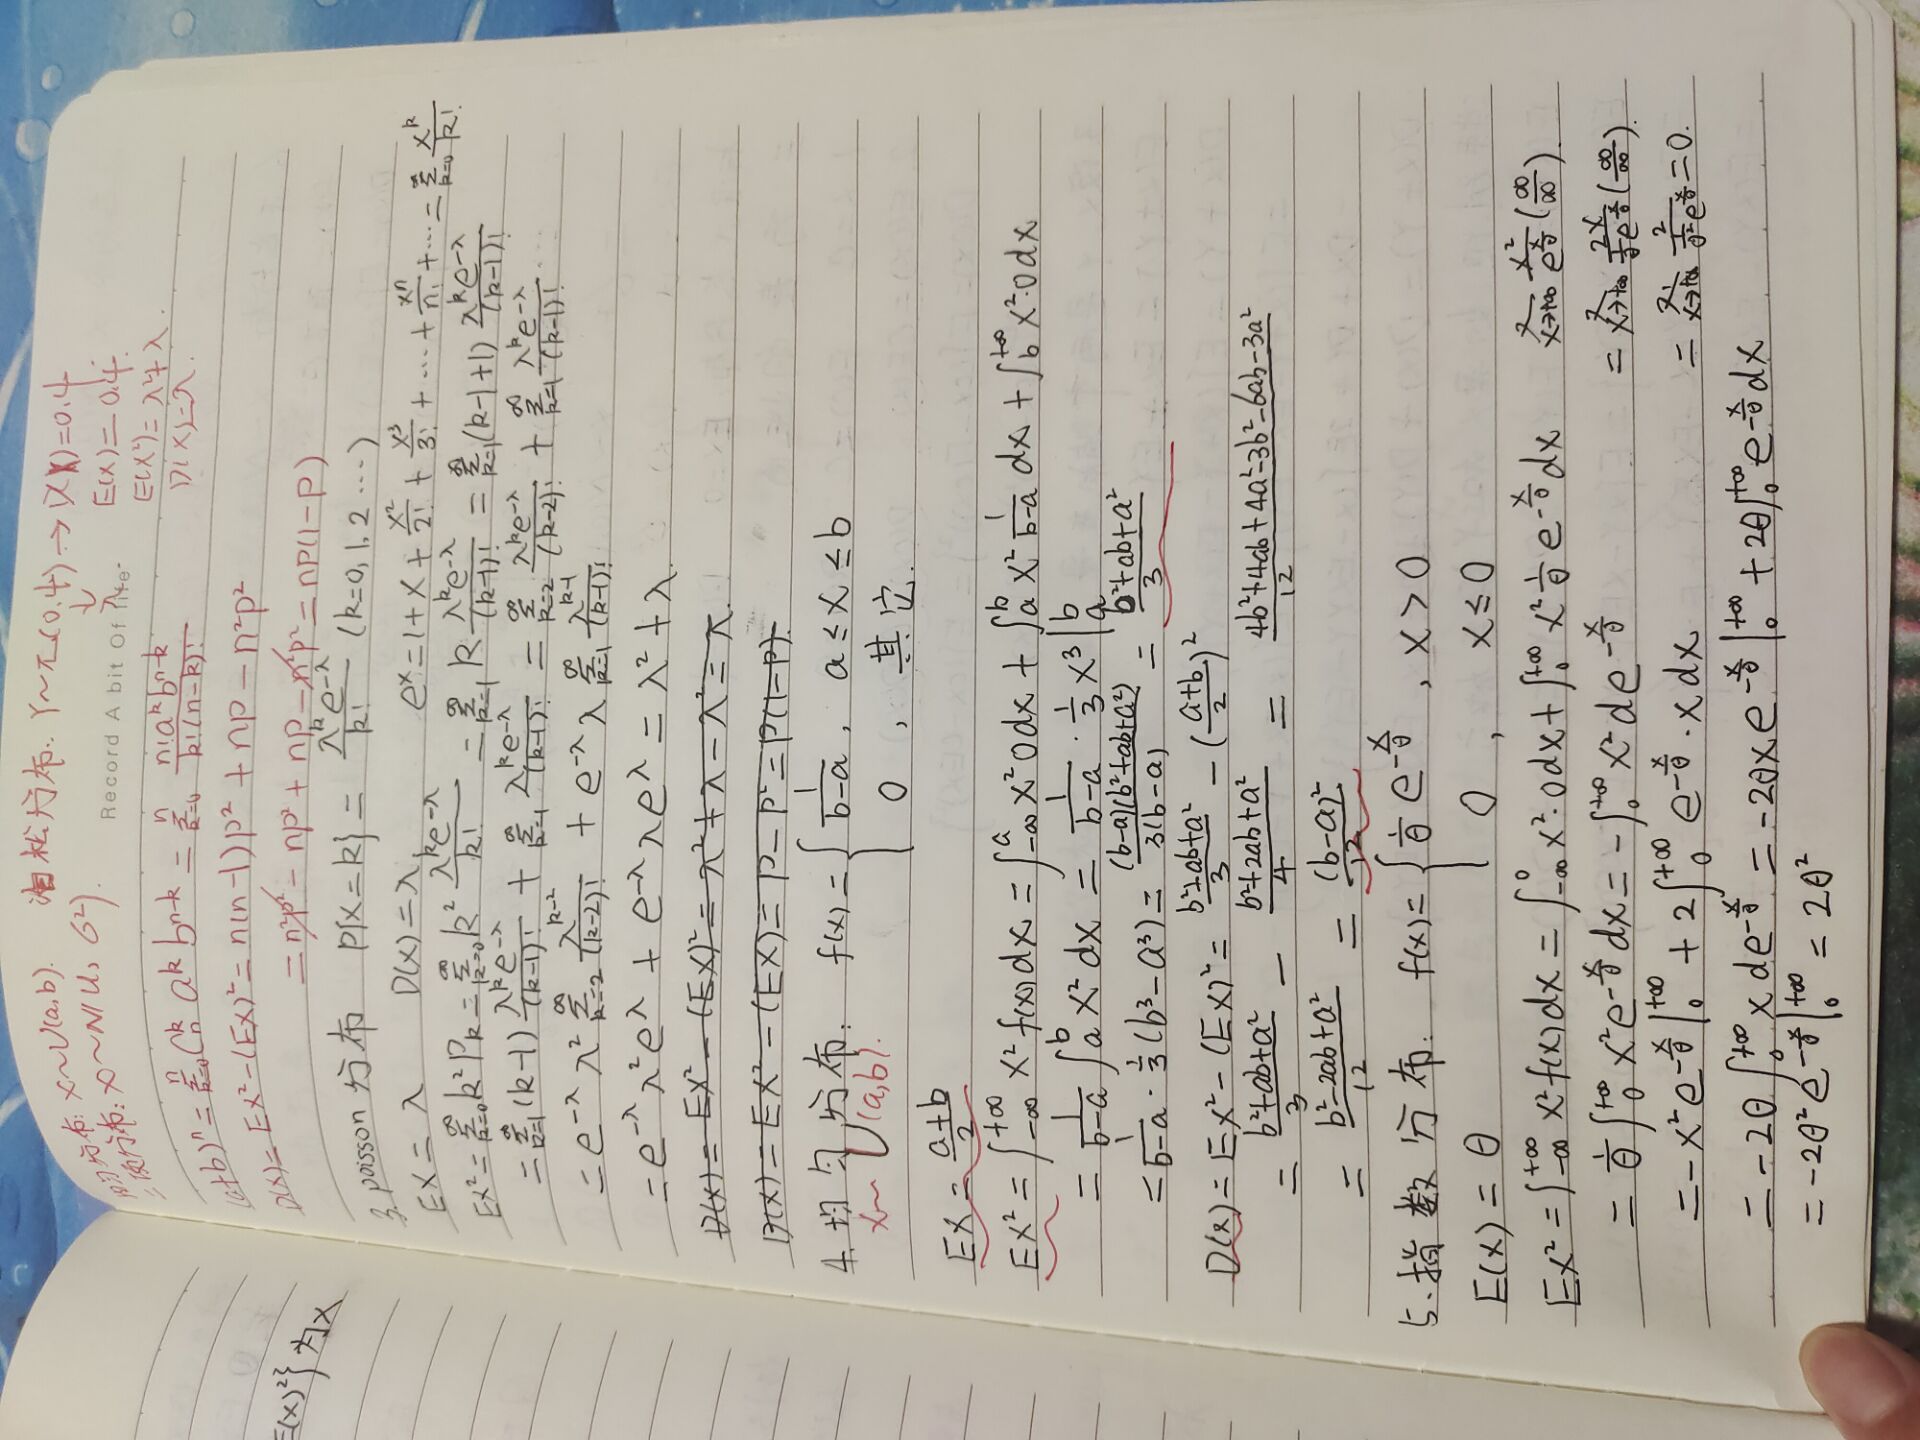 泊松分布: Y~π(0.4)→D(X)=0.4
均匀分布: X~U(a,b). ↓ E(X)=0.4.
二项分布: X~N(μ, σ²). λ E(X²)=λ²+λ.
D(X)=λ.
Record A bit Of life
(a+b)ⁿ = Σ_{k=0}^{n} C_n^k a^k b^{n-k} = Σ_{k=0}^{n} n!a^k b^{n-k}/k!(n-k)!
D(X)=EX²-(EX)²=n(n-1)p²+np-n²p²
=n²p²-np²+np-n²p²=np(1-p)
3.poisson分布 P{X=k}=λ^k e^{-λ}/k! (k=0,1,2…)
EX=λ D(X)=λ e^x=1+x+x²/2!+x³/3!+…+xⁿ/n!+…=Σ_{k=0}^{∞} x^k/k!
EX²=Σ_{k=0}^{∞}k²P_k=Σ_{k=0}^{∞}k² λ^k e^{-λ}/k! =Σ_{k=1}^{∞}k λ^k e^{-λ}/(k-1)! =Σ_{k=1}^{∞}(k-1+1) λ^k e^{-λ}/(k-1)!
=Σ_{k=1}^{∞}(k-1) λ^k e^{-λ}/(k-1)! + Σ_{k=1}^{∞} λ^k e^{-λ}/(k-1)! = Σ_{k=2}^{∞} λ^k e^{-λ}/(k-2)! + Σ_{k=1}^{∞} λ^k e^{-λ}/(k-1)!
=e^{-λ}λ² Σ_{k=2}^{∞} λ^{k-2}/(k-2)! + e^{-λ}λ Σ_{k=1}^{∞} λ^{k-1}/(k-1)!
=e^{-λ}λ²e^λ+e^{-λ}λe^λ=λ²+λ
D(X)=EX²-(EX)²=λ²+λ-λ²=λ
D(X)=EX²-(EX)=P-P²=P(1-P)
4.均匀分布. f(x)={1/(b-a), a≤x≤b
X~U(a,b). 0, 其它.
EX=(a+b)/2
EX²=∫_{-∞}^{+∞}x²f(x)dx=∫_{-∞}^{a}x²0dx+∫_a^b x² 1/(b-a) dx+∫_b^{+∞}x²·0dx
=1/(b-a) ∫_a^b x²dx=1/(b-a)·1/3 x³|_a^b
=1/(b-a)·1/3(b³-a³)=(b-a)(b²+ab+a²)/3(b-a)=(b²+ab+a²)/3
D(X)=EX²-(EX)²=(b²+ab+a²)/3-((a+b)/2)²
=(b²+ab+a²)/3-(b²+2ab+a²)/4=(4b²+4ab+4a²-3b²-6ab-3a²)/12
=(b²-2ab+a²)/12=(b-a)²/12
5.指数分布. f(x)={1/θ e^{-x/θ}, x>0
0, x≤0
E(X)=θ
EX²=∫_{-∞}^{+∞}x²f(x)dx=∫_{-∞}^{0}x²·0dx+∫_0^{+∞}x² 1/θ e^{-x/θ}dx x→+∞ x²/e^{x/θ}(∞/∞).
=1/θ∫_0^{+∞}x²e^{-x/θ}dx=-∫_0^{+∞}x²de^{-x/θ} = x→+∞ 2x/(1/θ e^{x/θ})(∞/∞).
=-x²e^{-x/θ}|_0^{+∞}+2∫_0^{+∞}e^{-x/θ}·xdx = x→+∞ 2/(1/θ² e^{x/θ})=0.
=-2θ∫_0^{+∞}xde^{-x/θ}=-2θxe^{-x/θ}|_0^{+∞}+2θ∫_0^{+∞}e^{-x/θ}dx
=-2θ²e^{-x/θ}|_0^{+∞}=2θ²
E(X)²}为X